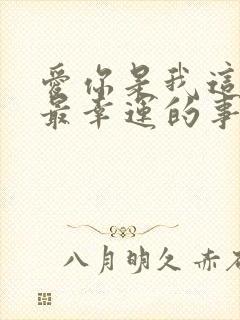 愛你是我這
最幸運的事
八月明久 赤石